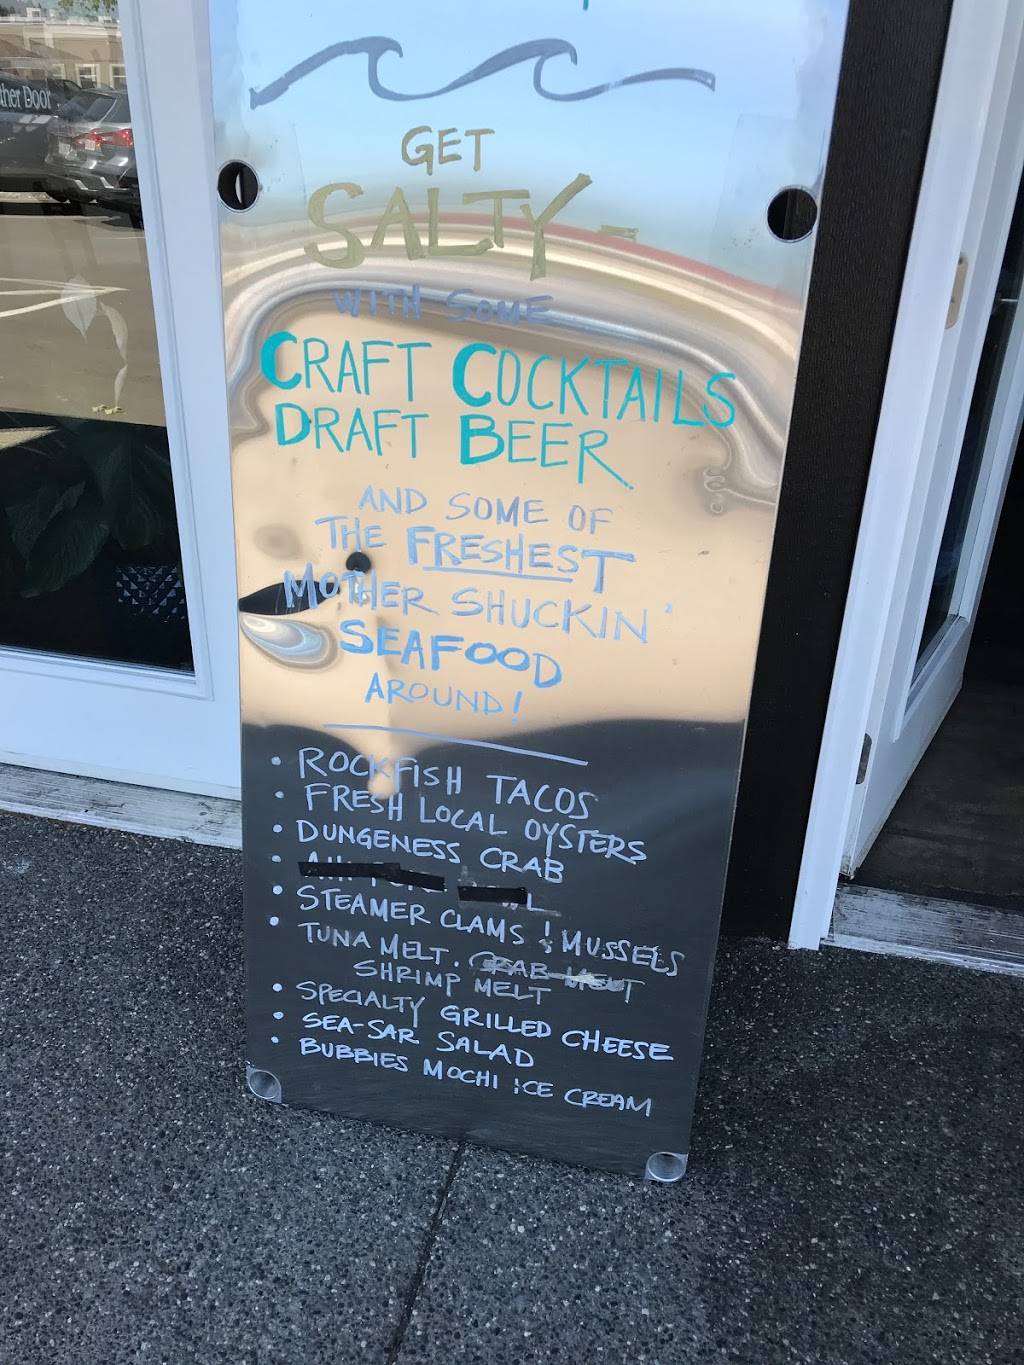 ther Door
GET
SALTY -
WITH SOME
CRAFT COCKTAILS
DRAFT BEER
AND SOME OF
THE FRESHEST
MOTHER SHUCKIN'
SEAFOOD
AROUND!
• ROCKFISH TACOS
• FRESH LOCAL OYSTERS
• DUNGENESS CRAB
• STEAMER CLAMS & MUSSELS
• TUNA MELT. CRAB MELT
SHRIMP MELT
• SPECIALTY GRILLED CHEESE
• SEA-SAR SALAD
• BUBBIES MOCHI ICE CREAM